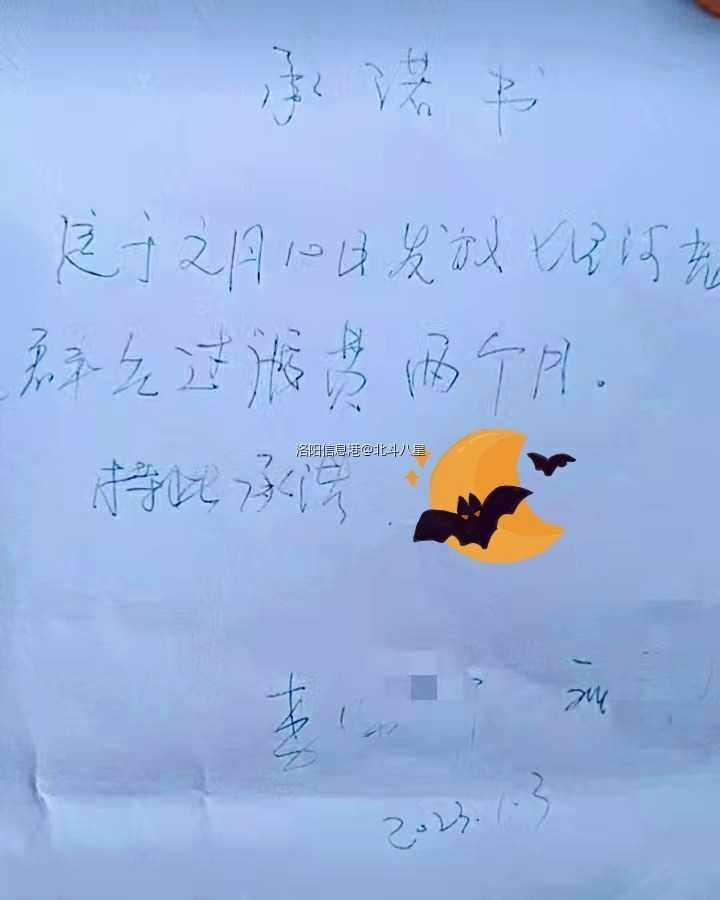 承诺书
定于元月10日发放七里河老
群众过渡费两个月.
洛阳信息港@北斗八星
特此承诺.
2023.1.3